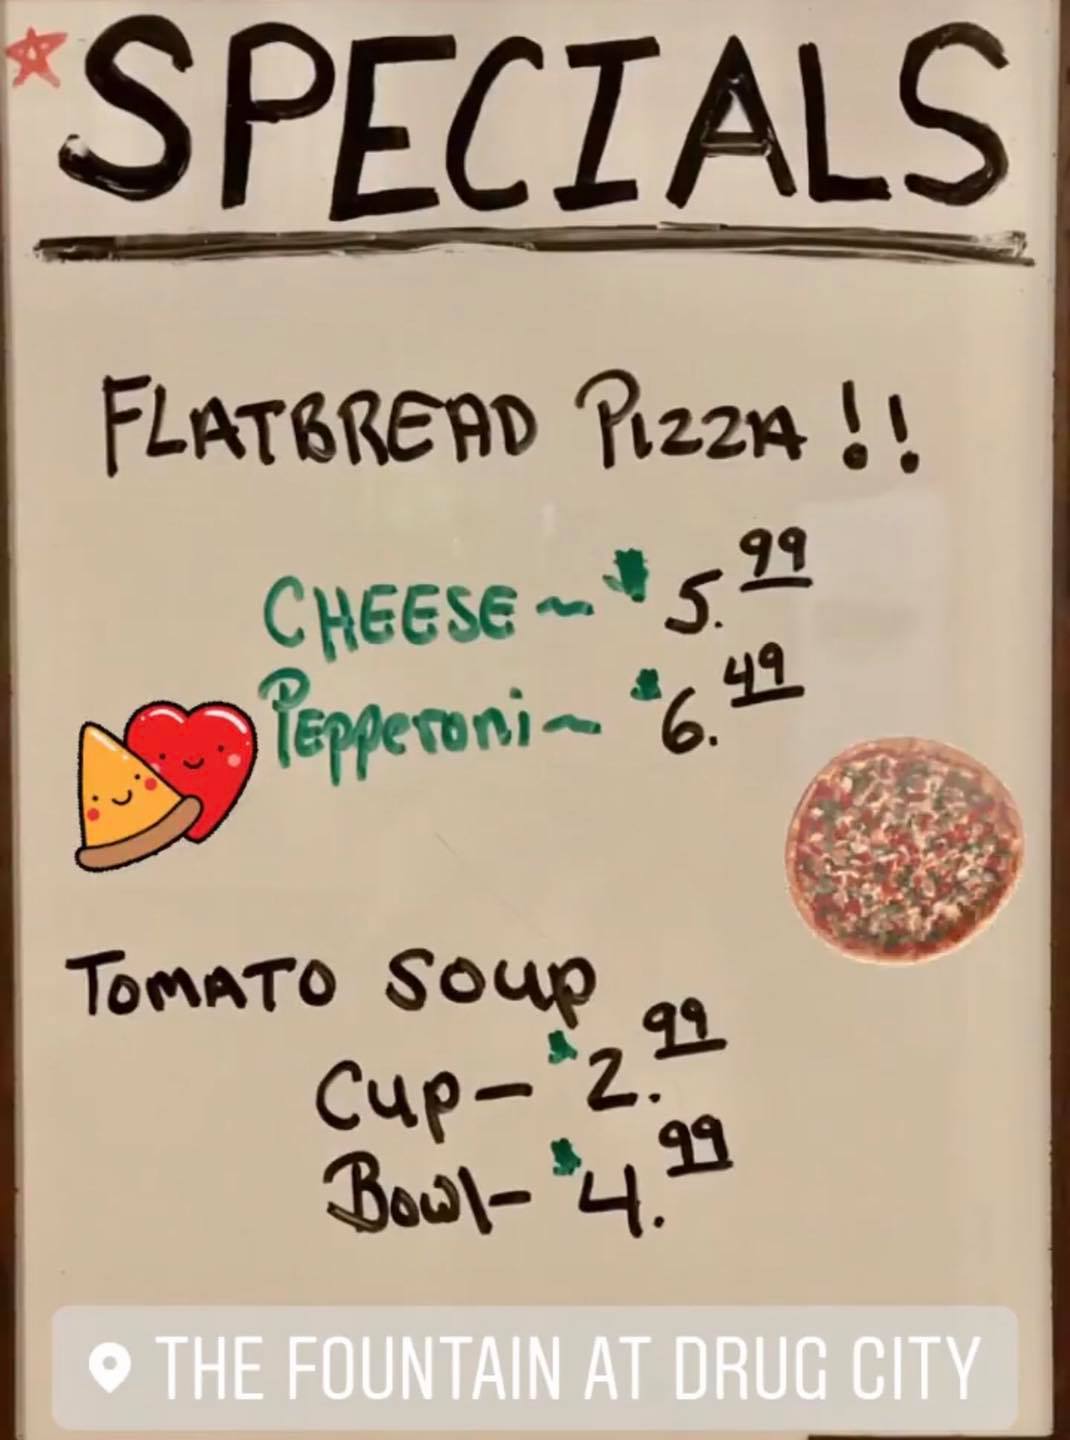 SPECIALS
FLATBREAD PIZZA!!
CHEESE ~ $5.99
Pepperoni ~ $6.49
TOMATO SOUP
Cup - $2.99
Bowl - $4.99
THE FOUNTAIN AT DRUG CITY